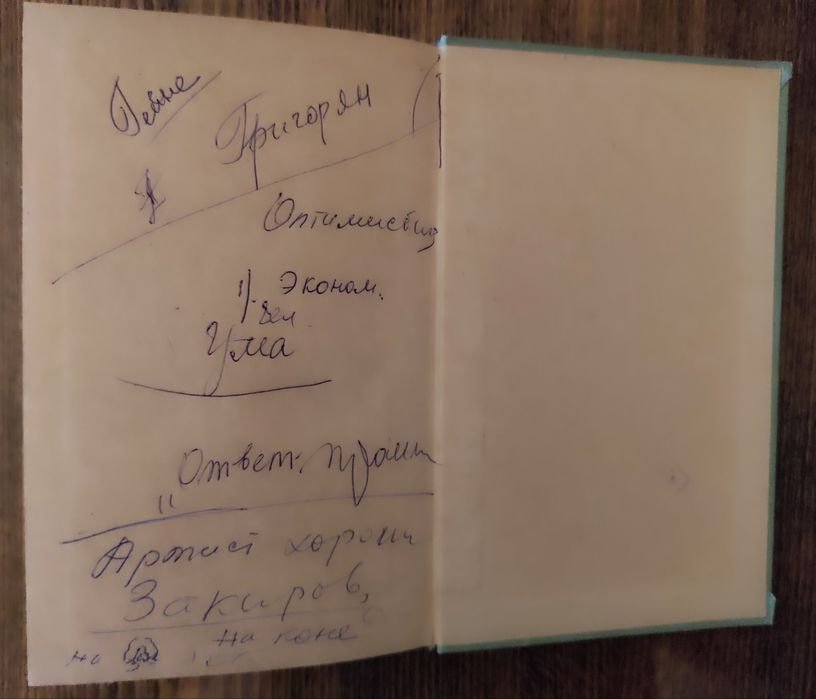 Гейне
Григорян
Оптимисти
Эконом.
Ума
"Ответ.
Артист хорош
Закиров,
на коне
на